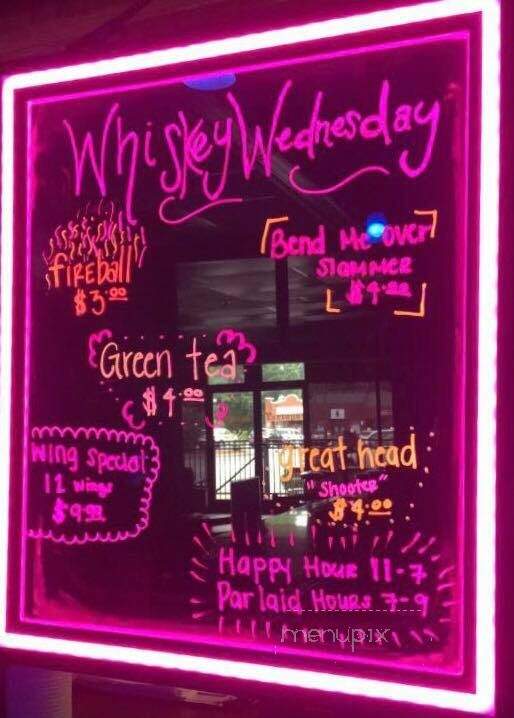 Whiskey Wednesday
fireball
$3.00
Bend Me over
Slammer
$4.00
Green tea
$4.00
Wing Special
12 wings
$9.99
great head
"Shooter"
$4.00
Happy Hour 11-7
Par laid Hours 7-9
menupix